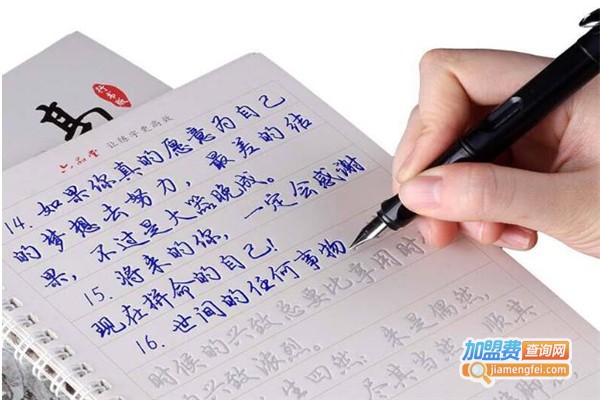 行书版
六品堂 让练字更高效
14. 如果你真的愿意为自己
的梦想去努力，最差的结
果，不过是大器晚成。
15. 将来的你，一定会感谢
现在拼命的自己!
16. 世间的任何事物
时候的兴致总要比享用时
的兴致浓烈。
生四然：来是偶然，
尽其当然，顺其
加盟费查询网
jiamengfei.com